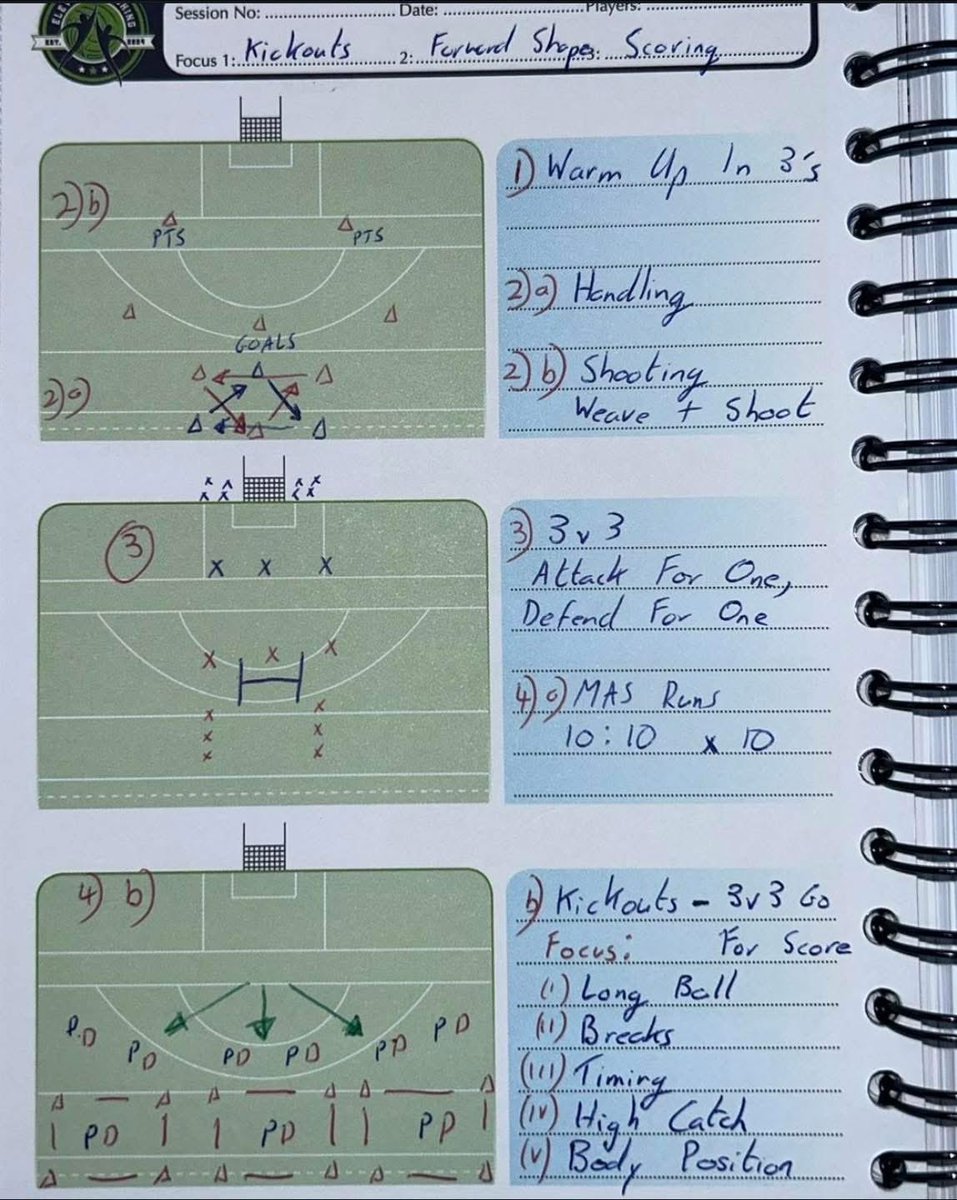 Session No: Date: Players:
Focus 1: Kickouts 2: Forward Shape 3: Scoring
2)b)
PTS PTS
GOALS
2)a)
1) Warm Up In 3's
2)a) Handling
2)b) Shooting
Weave + Shoot
3
3) 3v3
Attack For One,
Defend For One
4) a) MAS Runs
10:10 x 10
4) b)
P.D PD PD PD PD PD
PD PD PD
b) Kickouts - 3v3 Go
Focus: For Score
(i) Long Ball
(ii) Breaks
(iii) Timing
(iv) High Catch
(v) Body Position